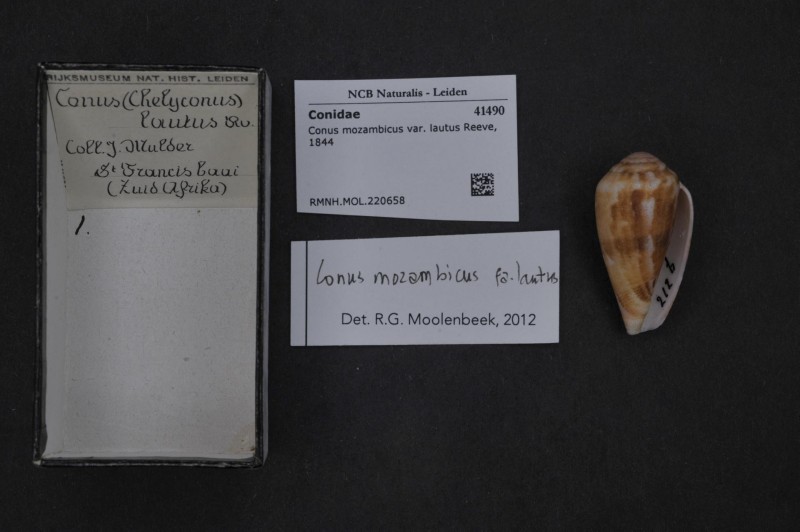 RIJKSMUSEUM NAT. HIST. LEIDEN
Conus (Chelyconus)
lautus Rv.
Coll. J. Mulder
St Francis baai
(Zuid Afrika)
1.
NCB Naturalis - Leiden
Conidae 41490
Conus mozambicus var. lautus Reeve,
1844
RMNH.MOL.220658
Conus mozambicus fa. lautus
Det. R.G. Moolenbeek, 2012
212 b